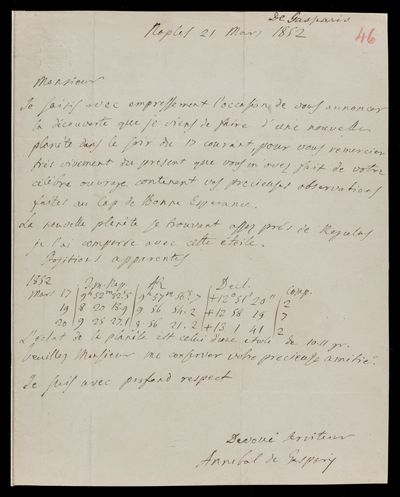 De Gasparis
46
Naples 21 Mars 1852
Monsieur
Je saisis avec empressement l'occasion de vous annoncer
la découverte que je viens de faire d'une nouvelle
planète dans le soir du 17 courant, pour vous remercier
très vivement du présent que vous m'avez fait de votre
célèbre ouvrage contenant vos precieuses observations
faites au Cap de Bonne Esperance.
La nouvelle planète se trouvant assez près de Regulus
je l'ai comparée avec cette étoile.
Positions apparentes
1852 Tm. Nap. AR Decl. Comp.
Mars 17 9h 52m 9h 57m +12° 51' 20" 2
19 8 20 9 56 54.2 +12 58 19 7
20 9 25 27.1 9 56 21.2 +13 1 41 2
L'éclat de la planète est celui d'une étoile de 10.11 gr.
Veuillez Monsieur me conserver votre precieuse amitié.
Je suis avec profond respect
Devoué serviteur
Annibal de Gasparis